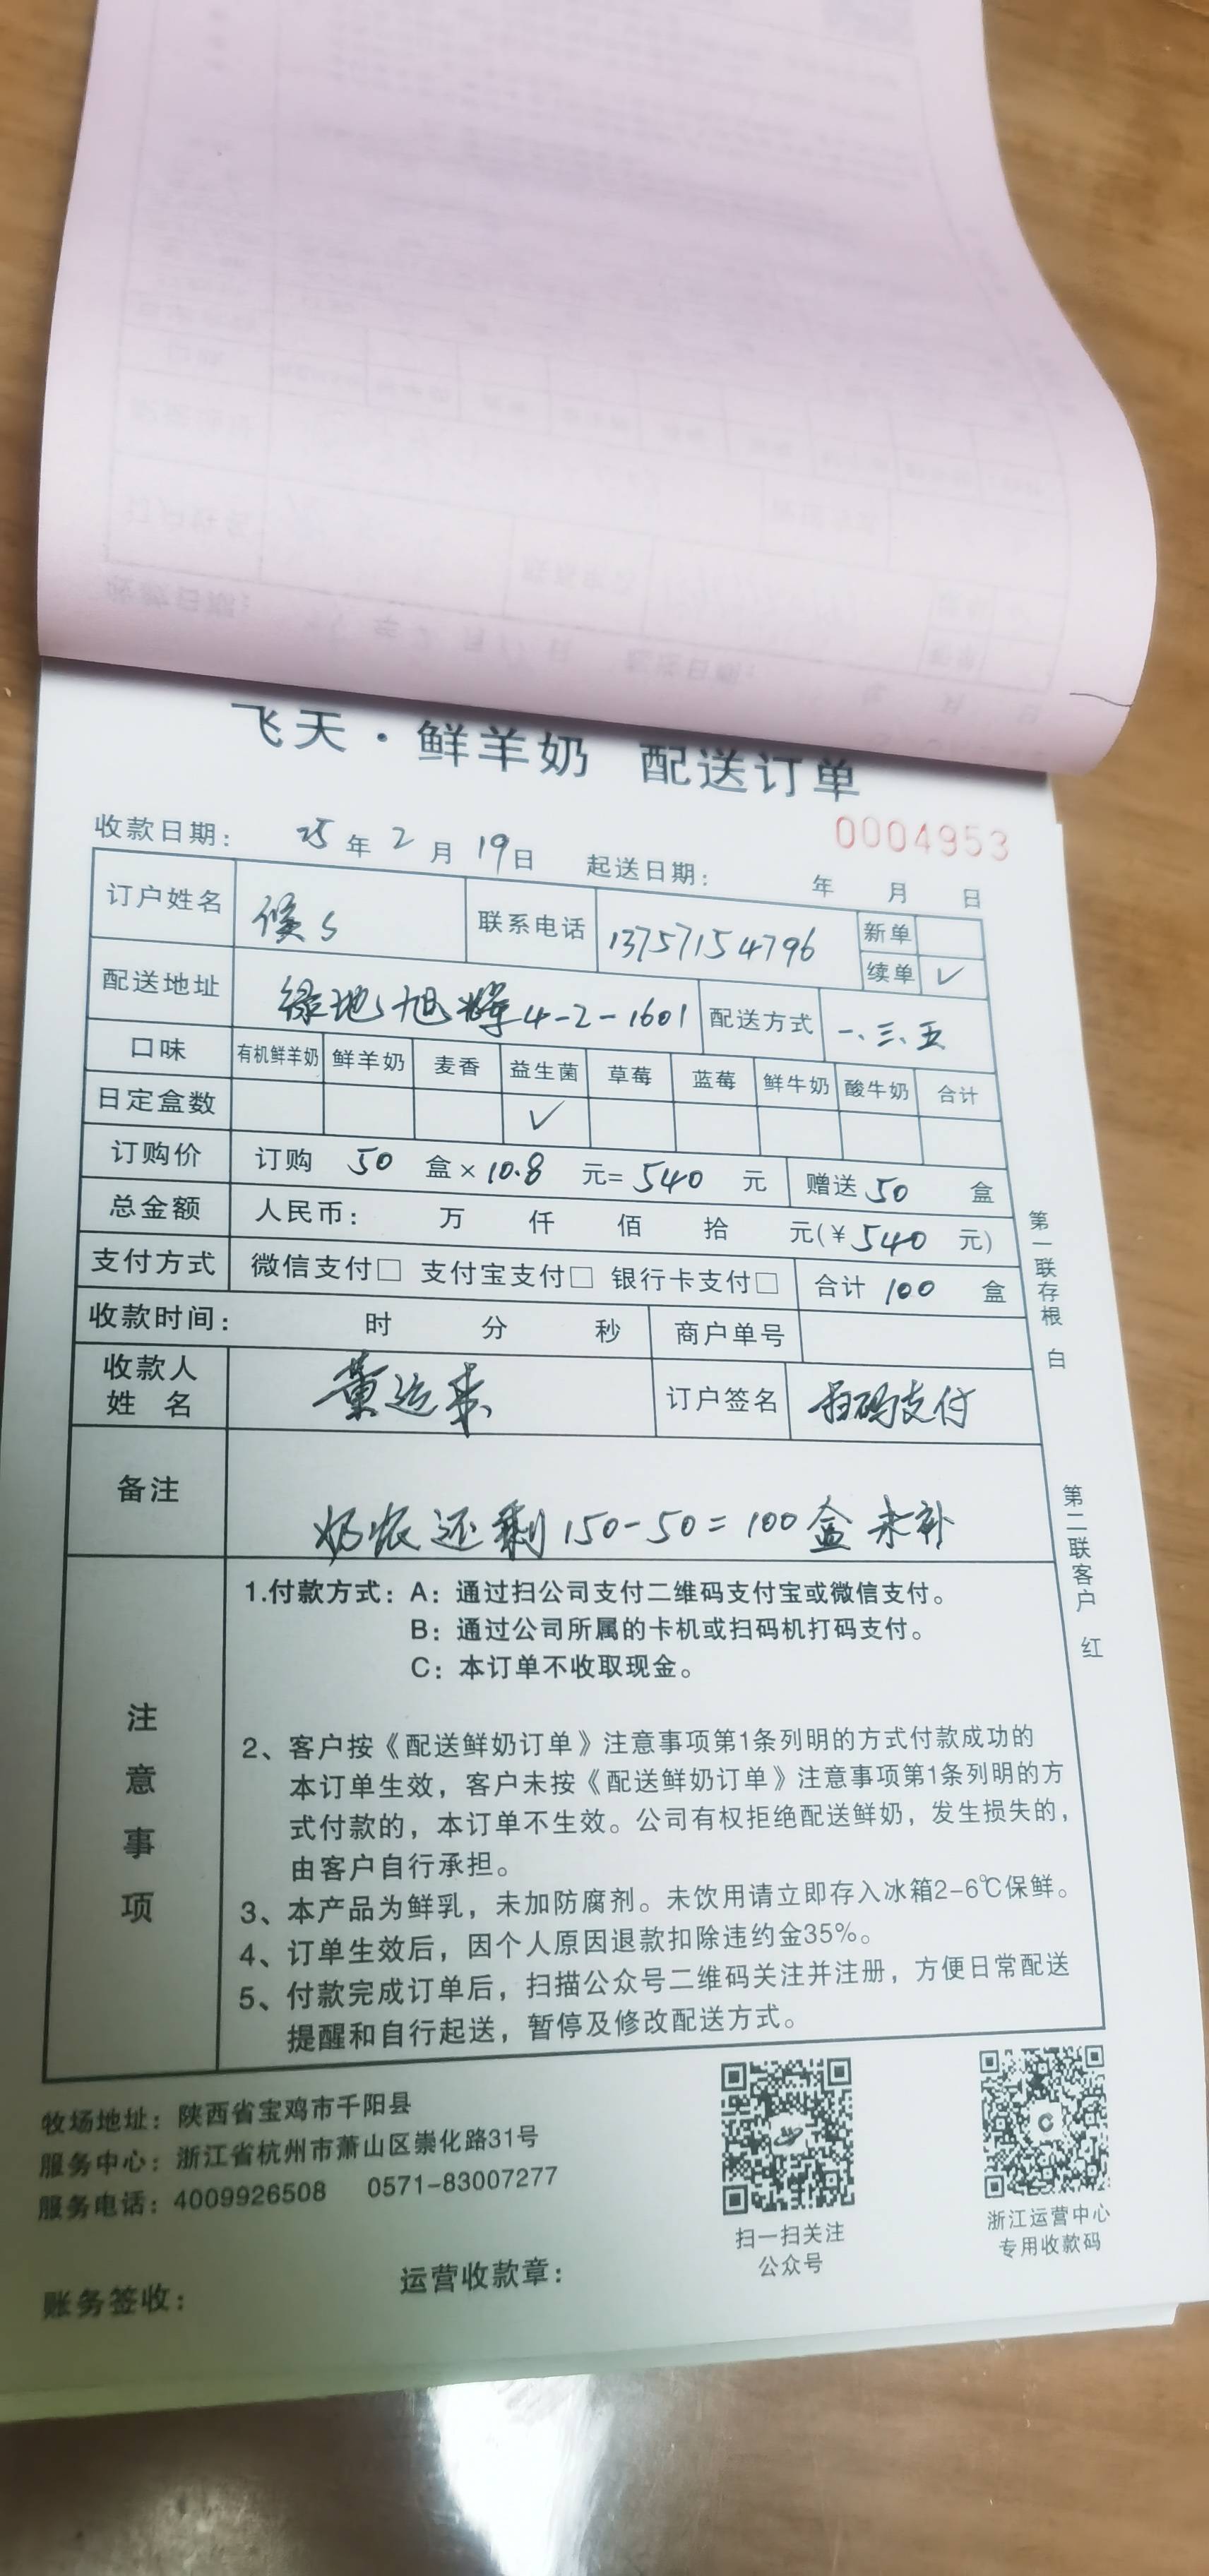 飞天·鲜羊奶 配送订单
0004953
收款日期： 25 年 2 月 19 日 起送日期： 年 月 日
订户姓名 侯S 联系电话 13757154796 新单
续单 ✓
配送地址 绿地旭辉4-2-1601 配送方式 一、三、五
口味 有机鲜羊奶 鲜羊奶 麦香 益生菌 草莓 蓝莓 鲜牛奶 酸牛奶 合计
日定盒数 ✓
订购价 订购 50 盒×10.8 元=540 元 赠送50 盒
总金额 人民币： 万 仟 佰 拾 元(¥540 元)
支付方式 微信支付□ 支付宝支付□ 银行卡支付□ 合计 100 盒
收款时间： 时 分 秒 商户单号
收款人
姓 名 董运来 订户签名 扫码支付
备注 奶农还剩150-50=100盒未补
注意事项
1.付款方式：A：通过扫公司支付二维码支付宝或微信支付。
B：通过公司所属的卡机或扫码机打码支付。
C：本订单不收取现金。
2、客户按《配送鲜奶订单》注意事项第1条列明的方式付款成功的
本订单生效，客户未按《配送鲜奶订单》注意事项第1条列明的方
式付款的，本订单不生效。公司有权拒绝配送鲜奶，发生损失的，
由客户自行承担。
3、本产品为鲜乳，未加防腐剂。未饮用请立即存入冰箱2-6℃保鲜。
4、订单生效后，因个人原因退款扣除违约金35%。
5、付款完成订单后，扫描公众号二维码关注并注册，方便日常配送
提醒和自行起送，暂停及修改配送方式。
第一联存根 白
第二联客户 红
牧场地址：陕西省宝鸡市千阳县
服务中心：浙江省杭州市萧山区崇化路31号
服务电话：4009926508 0571-83007277
扫一扫关注
公众号
浙江运营中心
专用收款码
账务签收： 运营收款章：